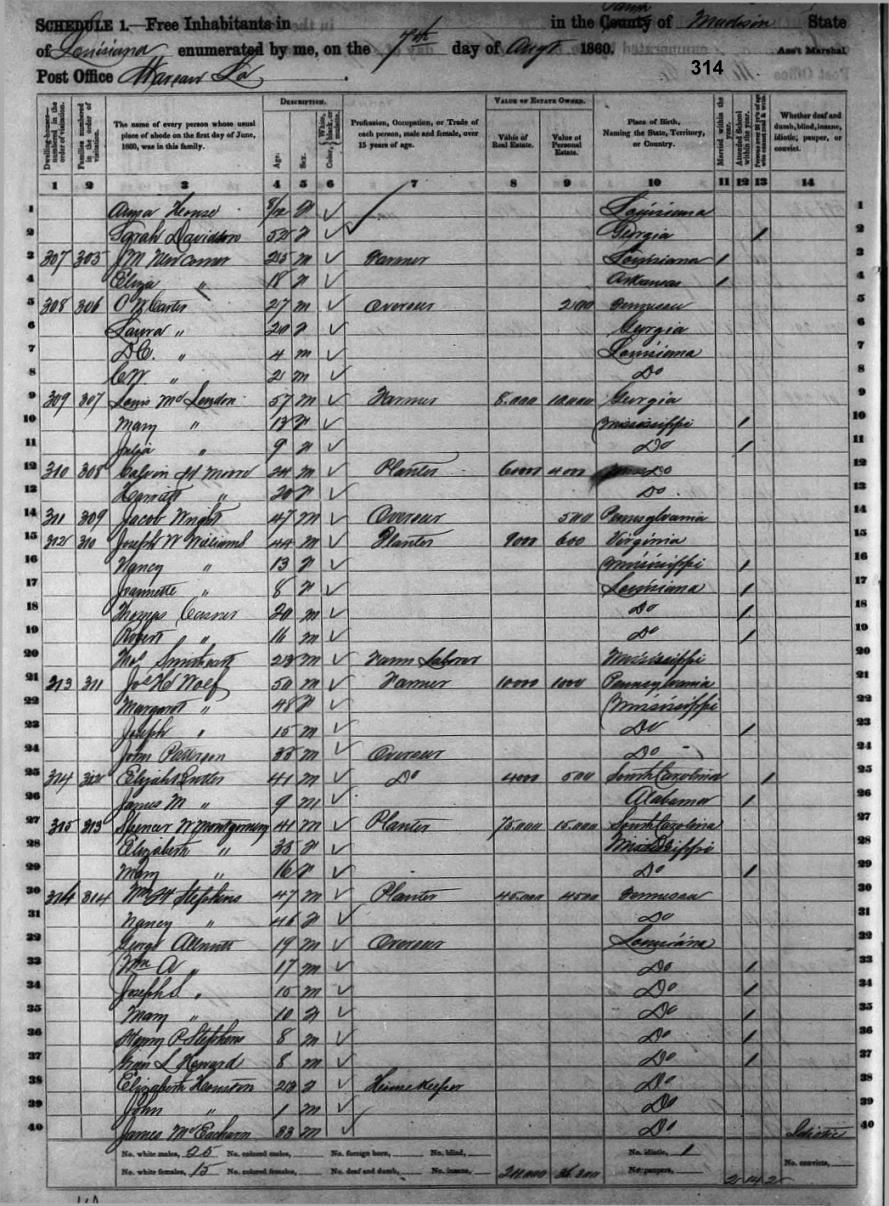 SCHEDULE 1.—Free Inhabitants in in the County of Madison State
of Louisiana enumerated by me, on the 7th day of Augt 1860. Ass't Marshal.
Post Office Warsaw La
314
DESCRIPTION. VALUE OF ESTATE OWNED.
Dwelling-houses—numbered in the order of visitation. Families numbered in the order of visitation. The name of every person whose usual place of abode on the first day of June, 1860, was in this family. Age. Sex. Color, White, black, or mulatto. Profession, Occupation, or Trade of each person, male and female, over 15 years of age. Value of Real Estate. Value of Personal Estate. Place of Birth, Naming the State, Territory, or Country. Married within the year. Attended School within the year. Whether deaf and dumb, blind, insane, idiotic, pauper, or convict.
1 2 3 4 5 6 7 8 9 10 11 12 13 14
1 Louisiana 1
2 Sarah Davidson 52 f Georgia / 2
3 307 305 J M Newcomer 25 m Farmer Louisiana / 3
4 Eliza " 18 f Arkansas / 4
5 308 306 O Carter 27 m Overseer 200 Tennessee 5
6 Laura " 20 f Georgia 6
7 D.C. " 4 m Louisiana 7
8 C W. " 2 m Do 8
9 309 307 Louis McLendon 57 m Farmer 8.000 10.000 Georgia 9
10 Mary " 13 f Mississippi / 10
11 Julia " 9 f Do / 11
12 310 308 Calvin H Moore 24 m Planter 6000 400 Do 12
13 Harriett " 20 f Do 13
14 311 309 Jacob Wright 47 m Overseer 500 Pennsylvania 14
15 312 310 Joseph W Williams 44 m Planter 9000 600 Virginia 15
16 Nancy " 13 f Mississippi / 16
17 Jeannette " 8 f Louisiana / 17
18 Thomas 20 m Do / 18
19 Robert " 16 m Do / 19
20 23 m Farm Laborer Mississippi 20
21 313 311 Jos H Wolf 50 m Farmer 1000 1000 Pennsylvania 21
22 Margaret " 48 f Mississippi 22
23 Joseph " 15 m Do / 23
24 John Patterson 35 m Overseer Do 24
25 314 312 Elijah 41 m Do 4000 500 South Carolina / 25
26 James M " 9 m Alabama / 26
27 315 313 Spencer W Montgomery 41 m Planter 75.000 15.000 South Carolina 27
28 Elizabeth " 35 f Mississippi 28
29 Mary " 16 f Do / 29
30 316 314 Wm H Stephens 47 m Planter 45.000 4500 Tennessee 30
31 Nancy " 46 f Do 31
32 George Allnutt 19 m Overseer Louisiana 32
33 Wm A " 17 m Do / 33
34 Joseph S " 15 m Do / 34
35 Mary " 10 f Do / 35
36 Henry P Stephens 8 m Do / 36
37 L Howard 8 m Do / 37
38 Elizabeth Houston 23 f House Keeper Do 38
39 John " 1 m Do 39
40 James McEachern 33 m Do Idiotic 40
No. white males, 25 No. colored males, No. foreign born, No. blind, No. idiotic, 1
No. white females, 15 No. colored females, No. deaf and dumb, No. insane, No. paupers, 2 14 2 No. convicts,